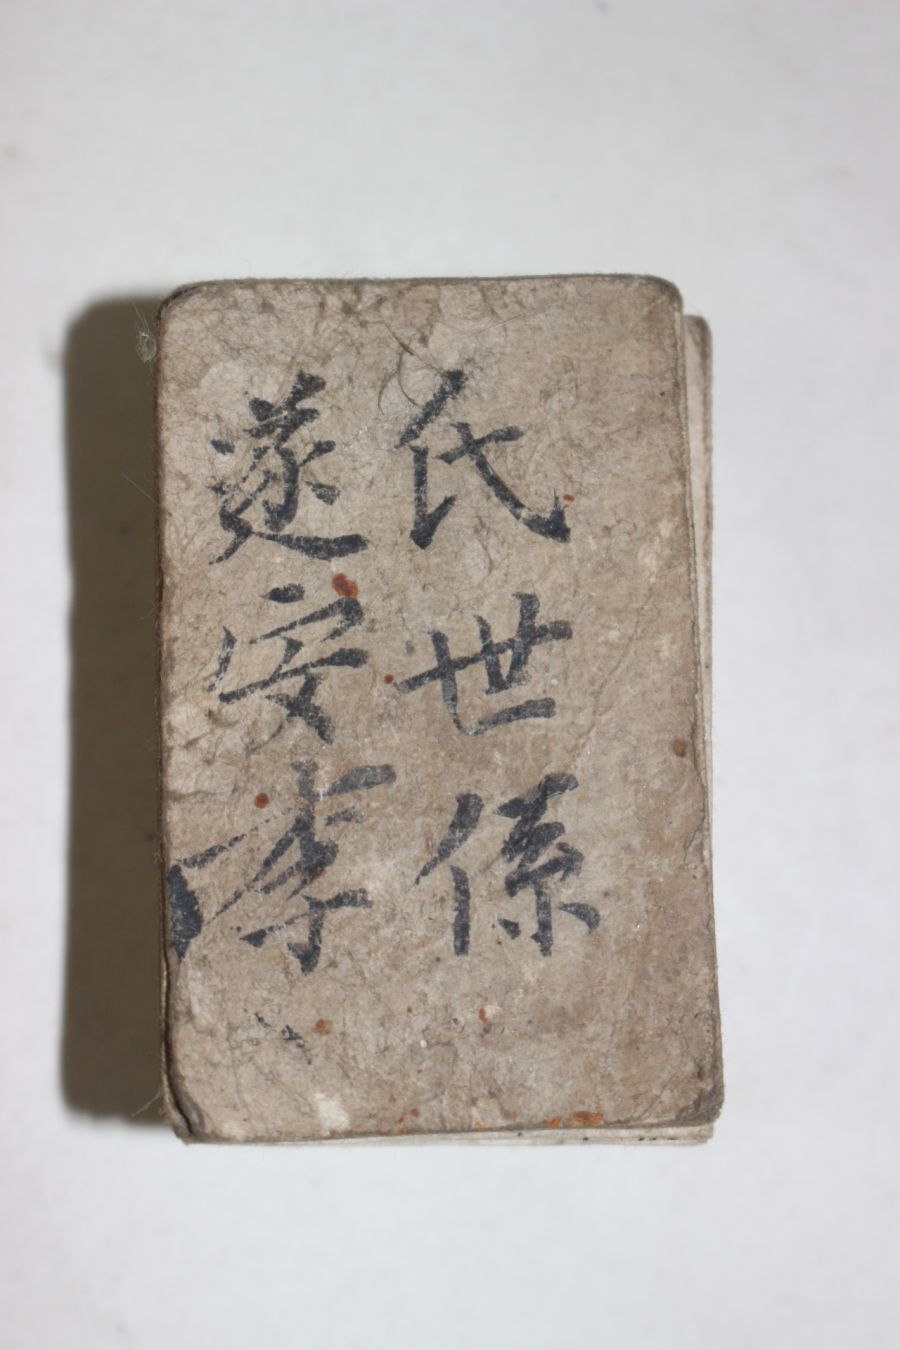 遂安李
氏世係